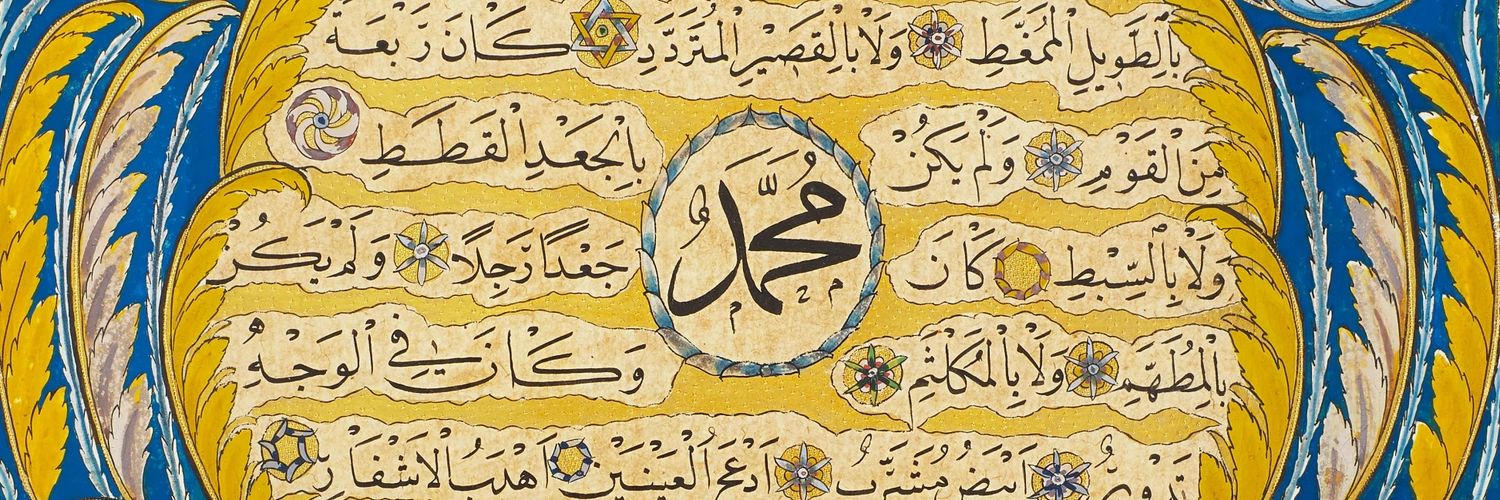 بِالطَّوِيلِ الْمُمَغَّطِ وَلَا بِالْقَصِيرِ الْمُتَرَدِّدِ كَانَ رَبْعَةً
مِنَ الْقَوْمِ وَلَمْ يَكُنْ بِالْجَعْدِ الْقَطَطِ
مُحَمَّد
وَلَا بِالسِّبْطِ كَانَ جَعْدًا رَجِلًا وَلَمْ يَكُنْ
بِالْمُطَهَّمِ وَلَا بِالْمُكَلْثَمِ وَكَانَ فِي الْوَجْهِ
تَدْوِيرٌ اَبْيَضُ مُشْرَبٌ اَدْعَجُ الْعَيْنَيْنِ اَهْدَبُ الْاَشْفَارِ